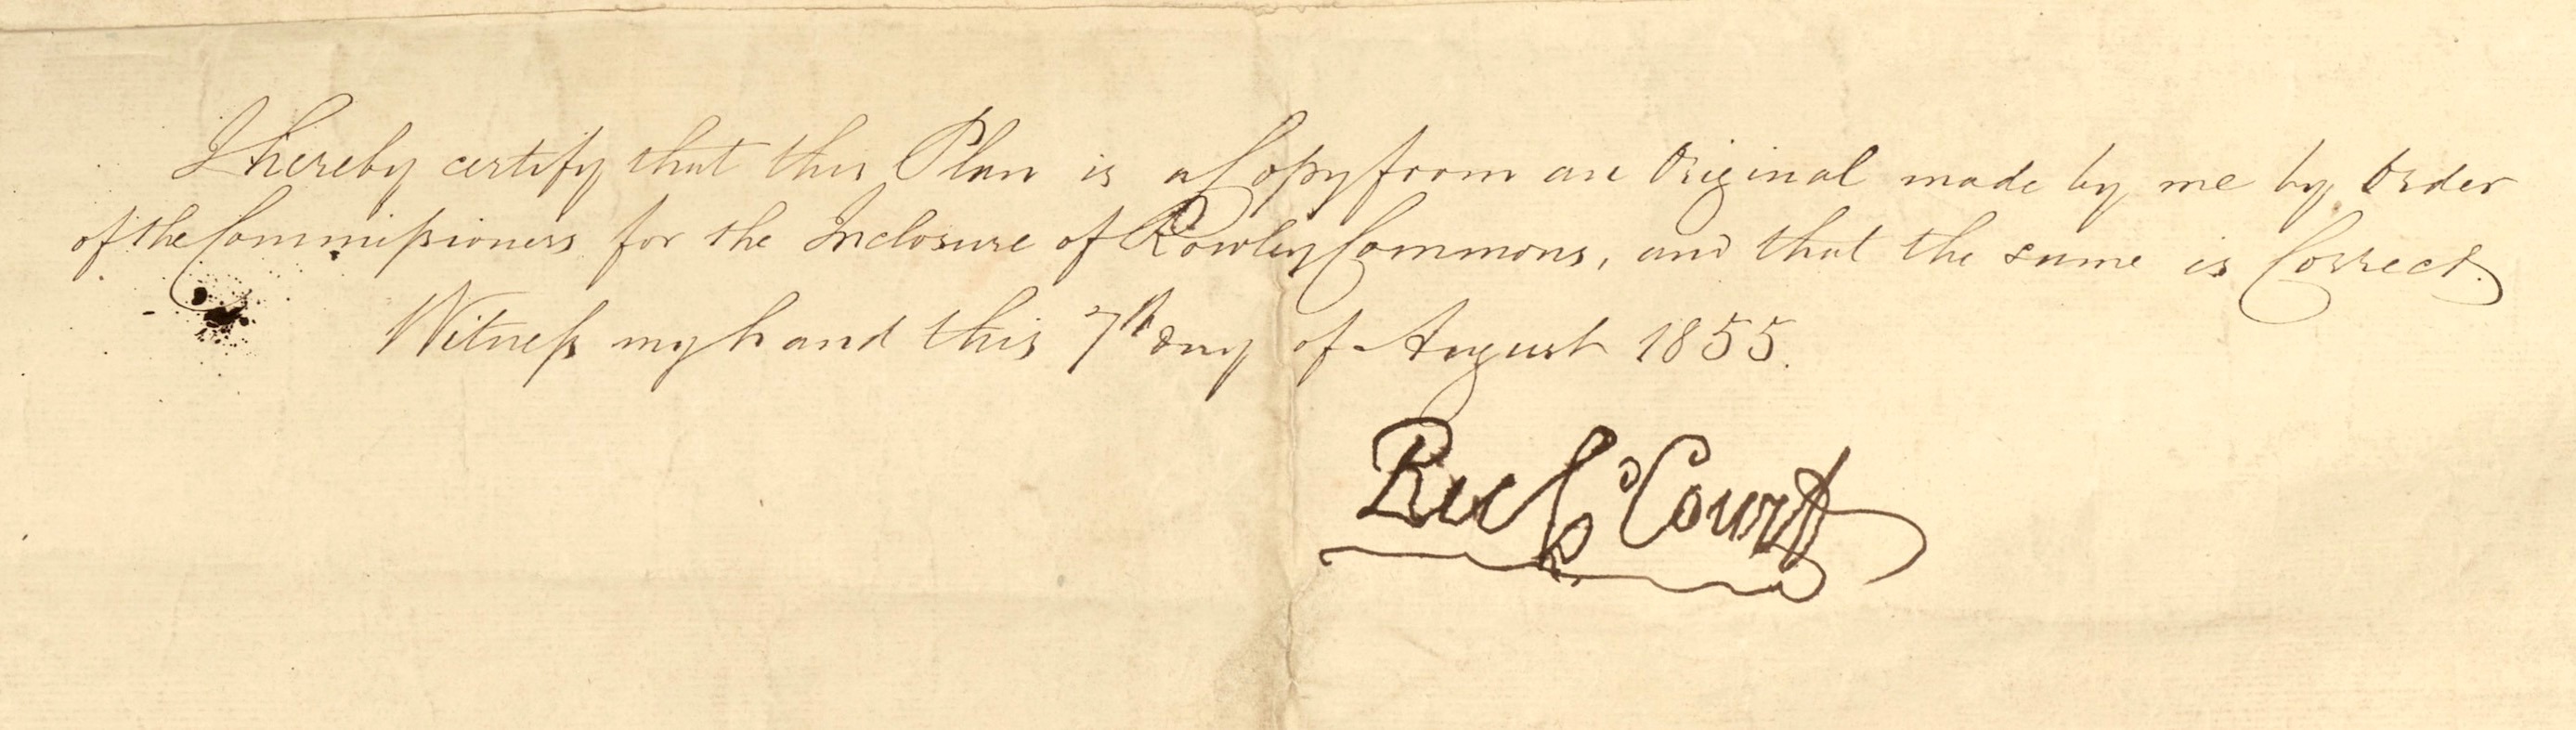 I hereby certify that this Plan is a Copy from an Original made by me by Order
of the Commiſsioners for the Inclosure of Rowley Commons, and that the same is Correct.
Witneſs my hand this 7th day of August 1855.
Richd Court